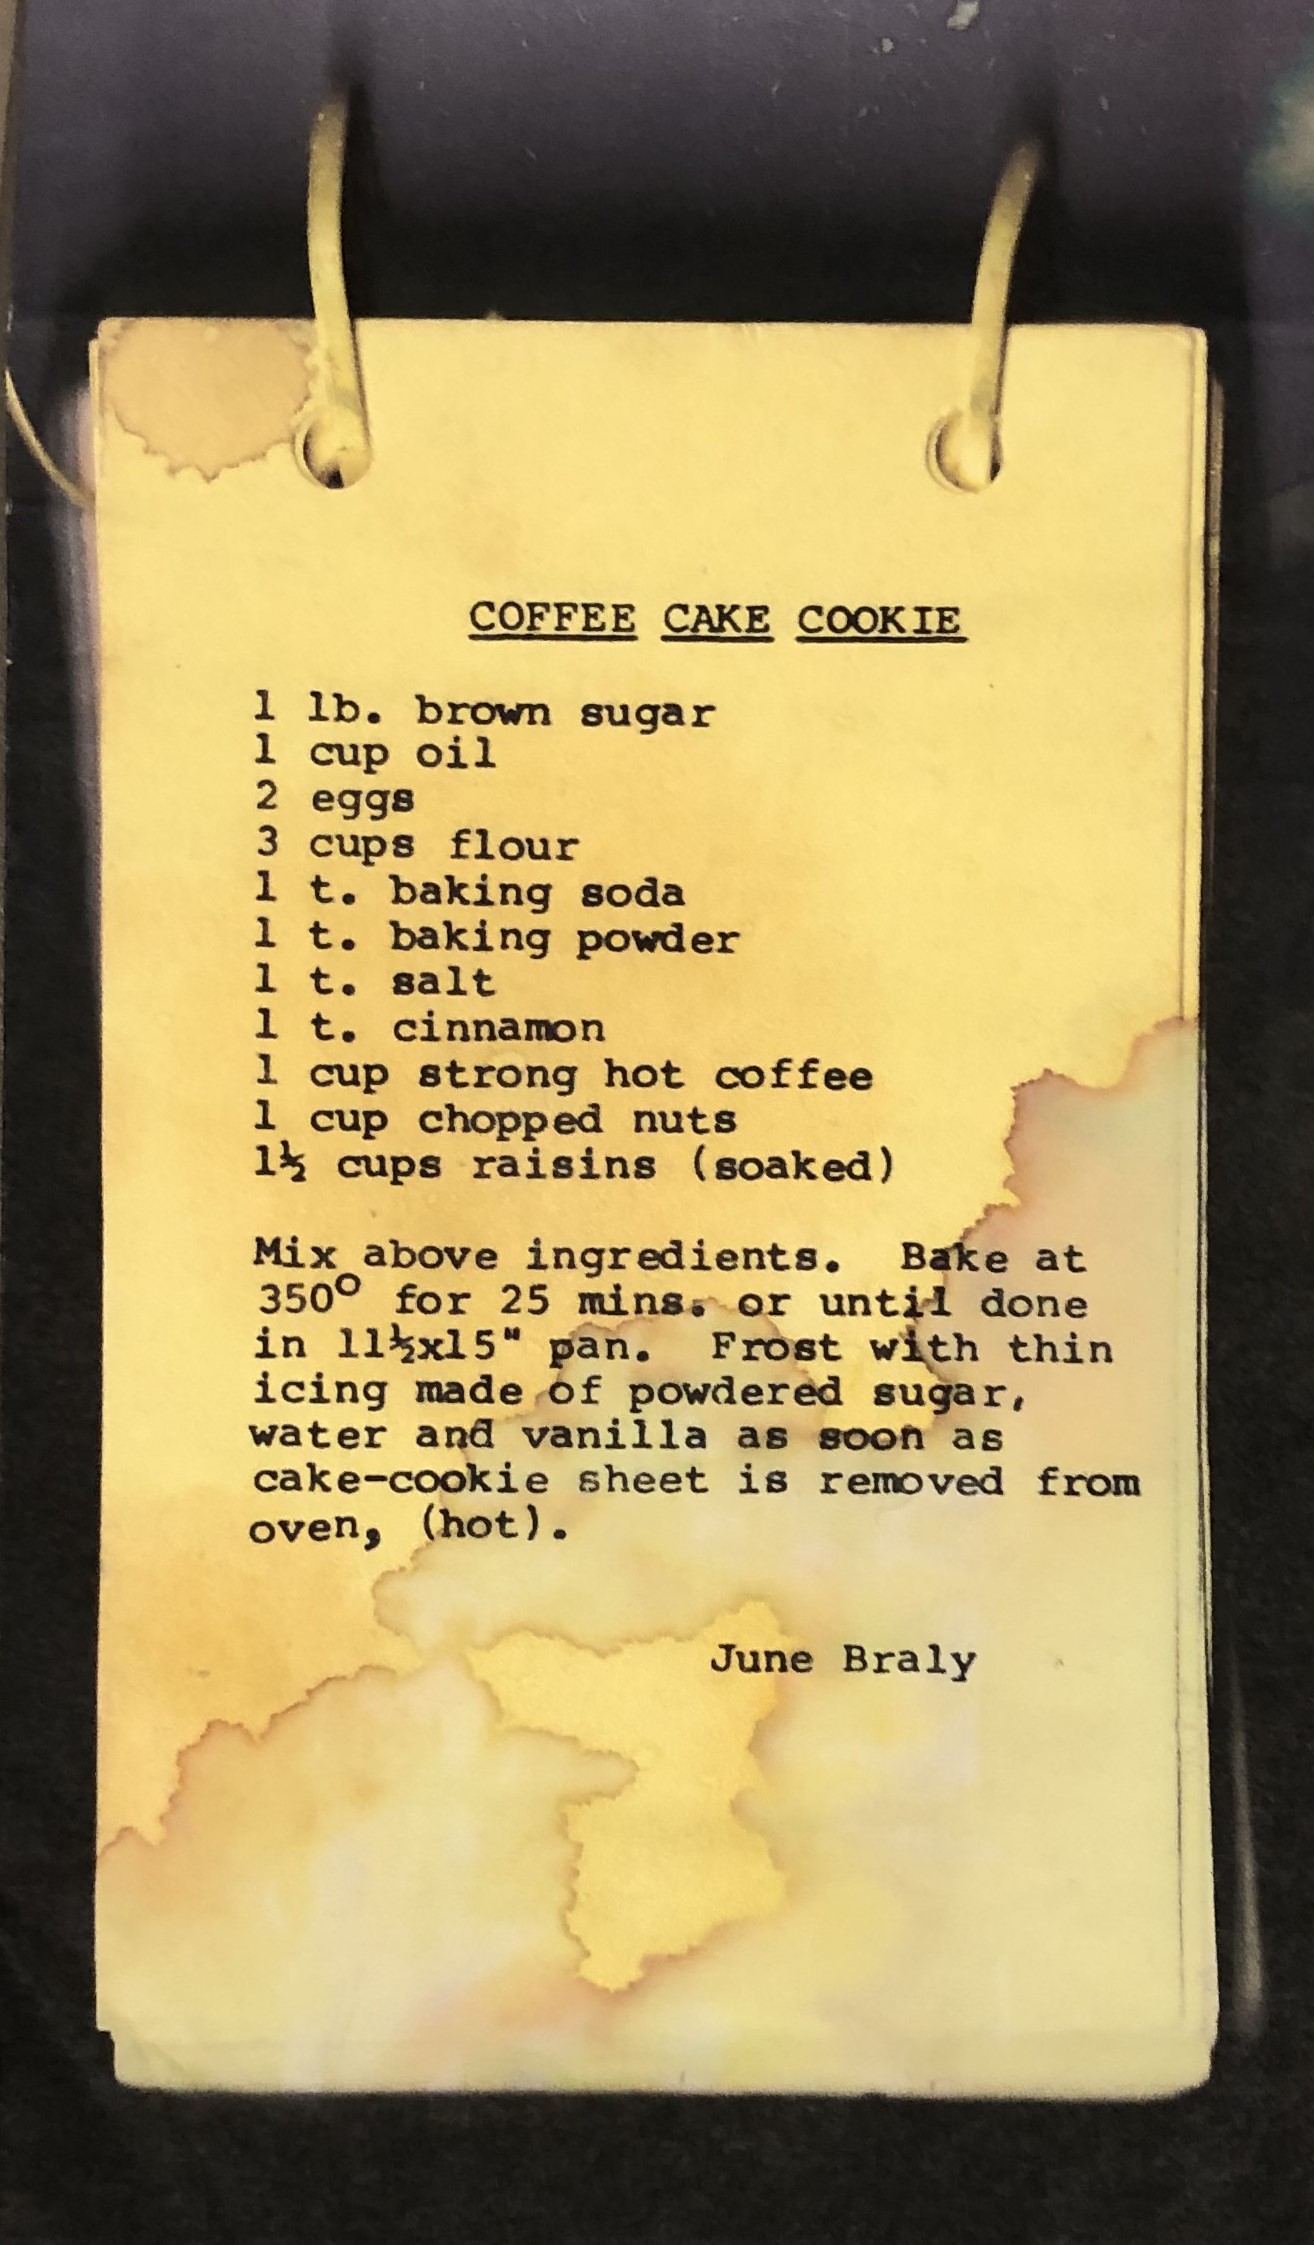 COFFEE CAKE COOKIE
1 lb. brown sugar
1 cup oil
2 eggs
3 cups flour
1 t. baking soda
1 t. baking powder
1 t. salt
1 t. cinnamon
1 cup strong hot coffee
1 cup chopped nuts
1½ cups raisins (soaked)
Mix above ingredients. Bake at
350° for 25 mins. or until done
in 11½x15" pan. Frost with thin
icing made of powdered sugar,
water and vanilla as soon as
cake-cookie sheet is removed from
oven, (hot).
June Braly